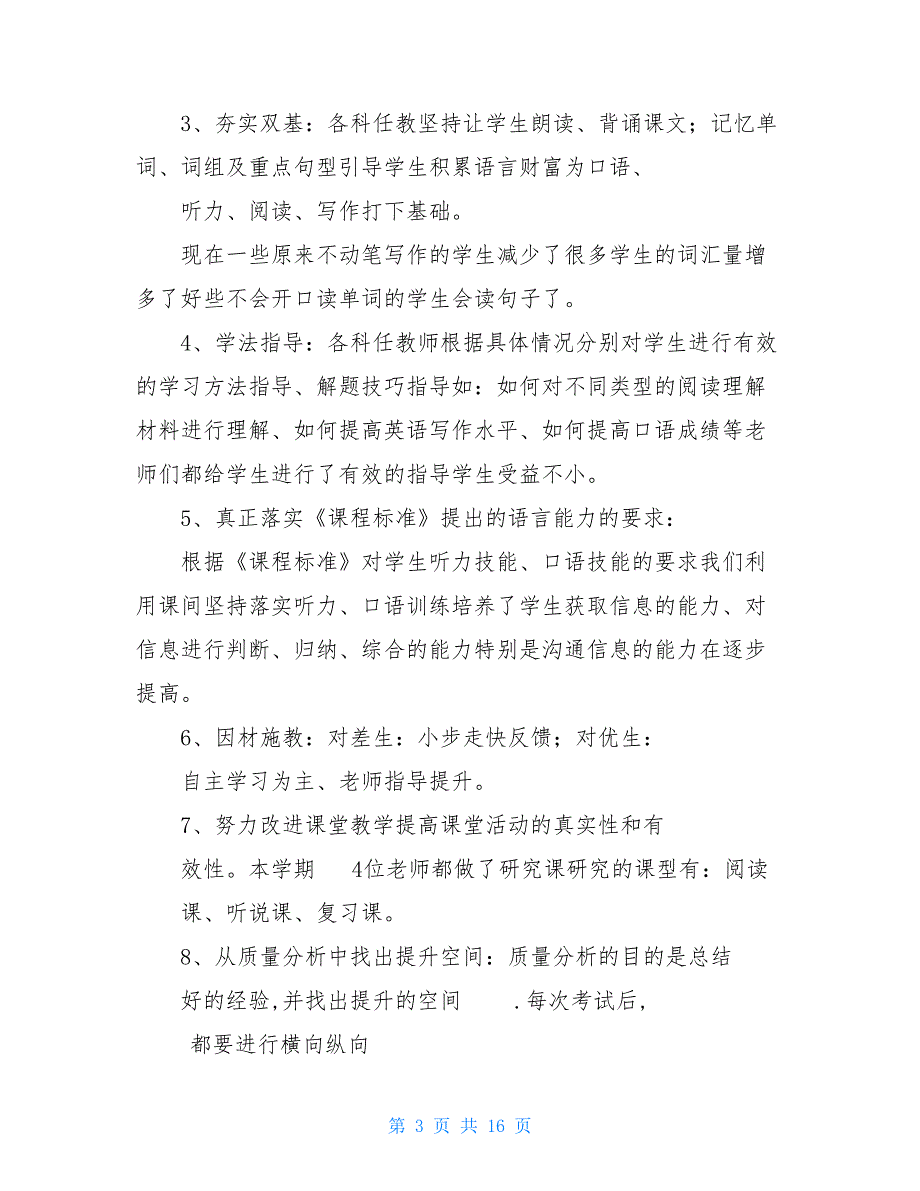 3、夯实双基：各科任教坚持让学生朗读、背诵课文；记忆单
词、词组及重点句型引导学生积累语言财富为口语、
听力、阅读、写作打下基础。
现在一些原来不动笔写作的学生减少了很多学生的词汇量增
多了好些不会开口读单词的学生会读句子了。
4、学法指导：各科任教师根据具体情况分别对学生进行有效
的学习方法指导、解题技巧指导如：如何对不同类型的阅读理解
材料进行理解、如何提高英语写作水平、如何提高口语成绩等老
师们都给学生进行了有效的指导学生受益不小。
5、真正落实《课程标准》提出的语言能力的要求：
根据《课程标准》对学生听力技能、口语技能的要求我们利
用课间坚持落实听力、口语训练培养了学生获取信息的能力、对
信息进行判断、归纳、综合的能力特别是沟通信息的能力在逐步
提高。
6、因材施教：对差生：小步走快反馈；对优生：
自主学习为主、老师指导提升。
7、努力改进课堂教学提高课堂活动的真实性和有
效性。本学期 4位老师都做了研究课研究的课型有：阅读
课、听说课、复习课。
8、从质量分析中找出提升空间：质量分析的目的是总结
好的经验,并找出提升的空间 .每次考试后,
都要进行横向纵向
第 3 页 共 16 页